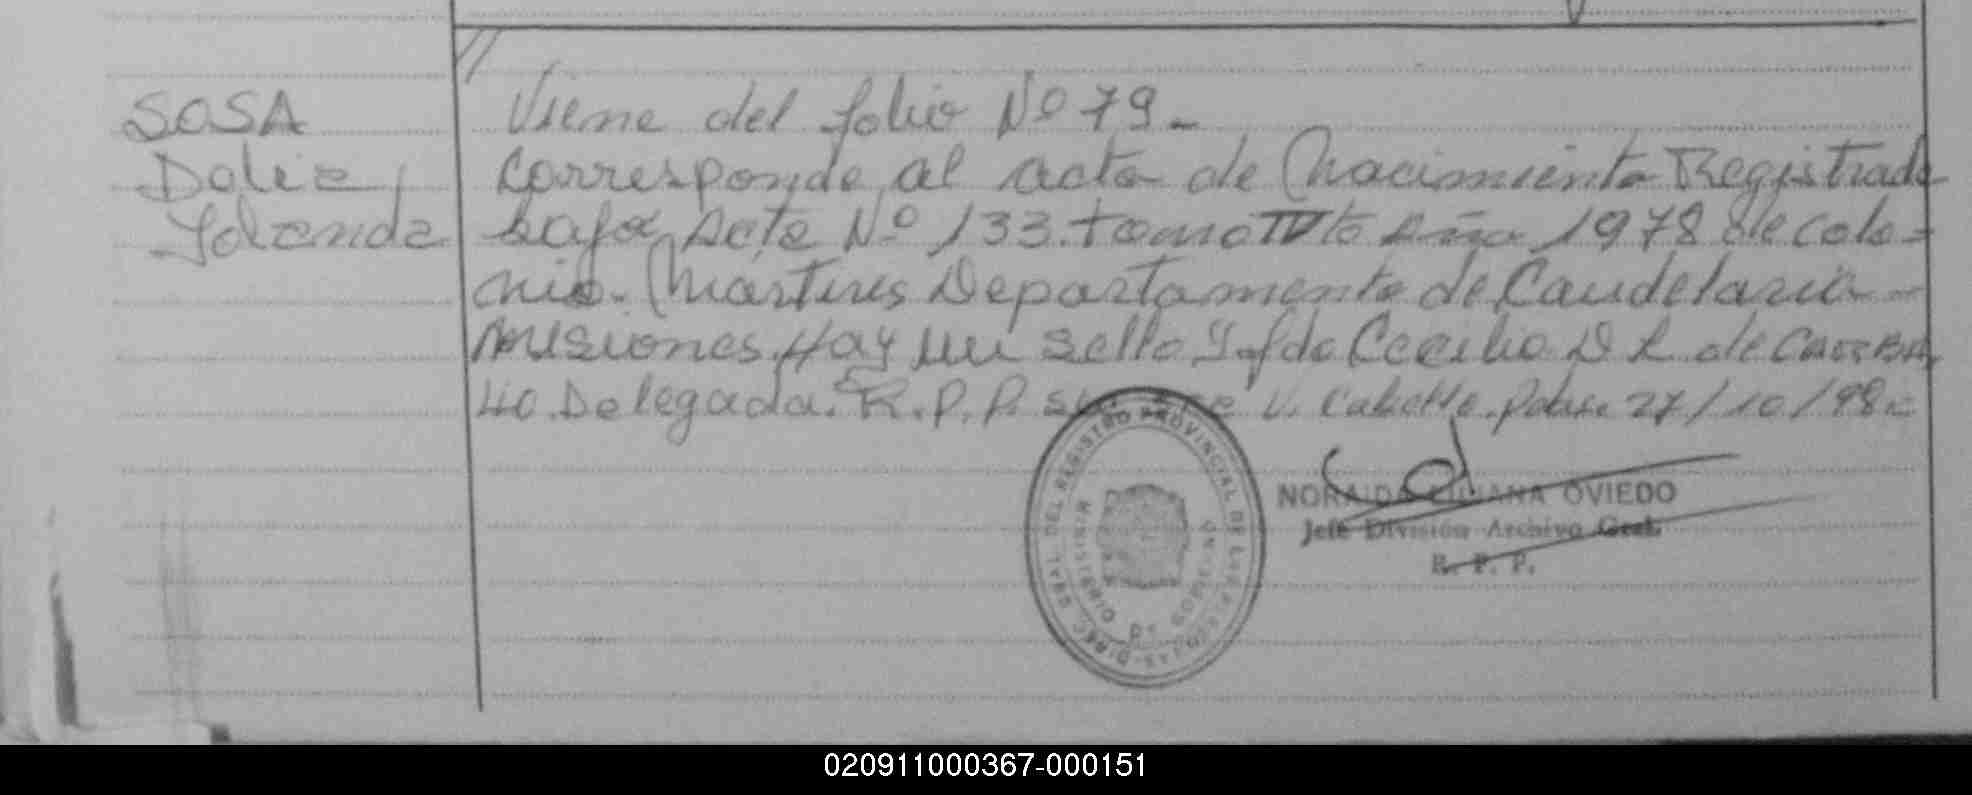 SOSA
Dalia
Yolanda
Viene del folio Nº 79.-
Corresponde al acta de Nacimiento Registrada
bajo Acta Nº 133. tomo IVto Año 1978 de Colo=
nia. Mártires Departamento de Candelaria-
Misiones. Hay un sello y fdo Cecilia D R de CARBA
LLO. Delegada. R.P.P. V. Cabelle. Pdas. 27/10/98.=
NORAIDA LILIANA OVIEDO
Jefe División Archivo Gral.
R. P. P.
DIREC. GRAL. DEL REGISTRO PROVINCIAL DE LAS PERSONAS
MINISTERIO DE GOBIERNO
020911000367-000151